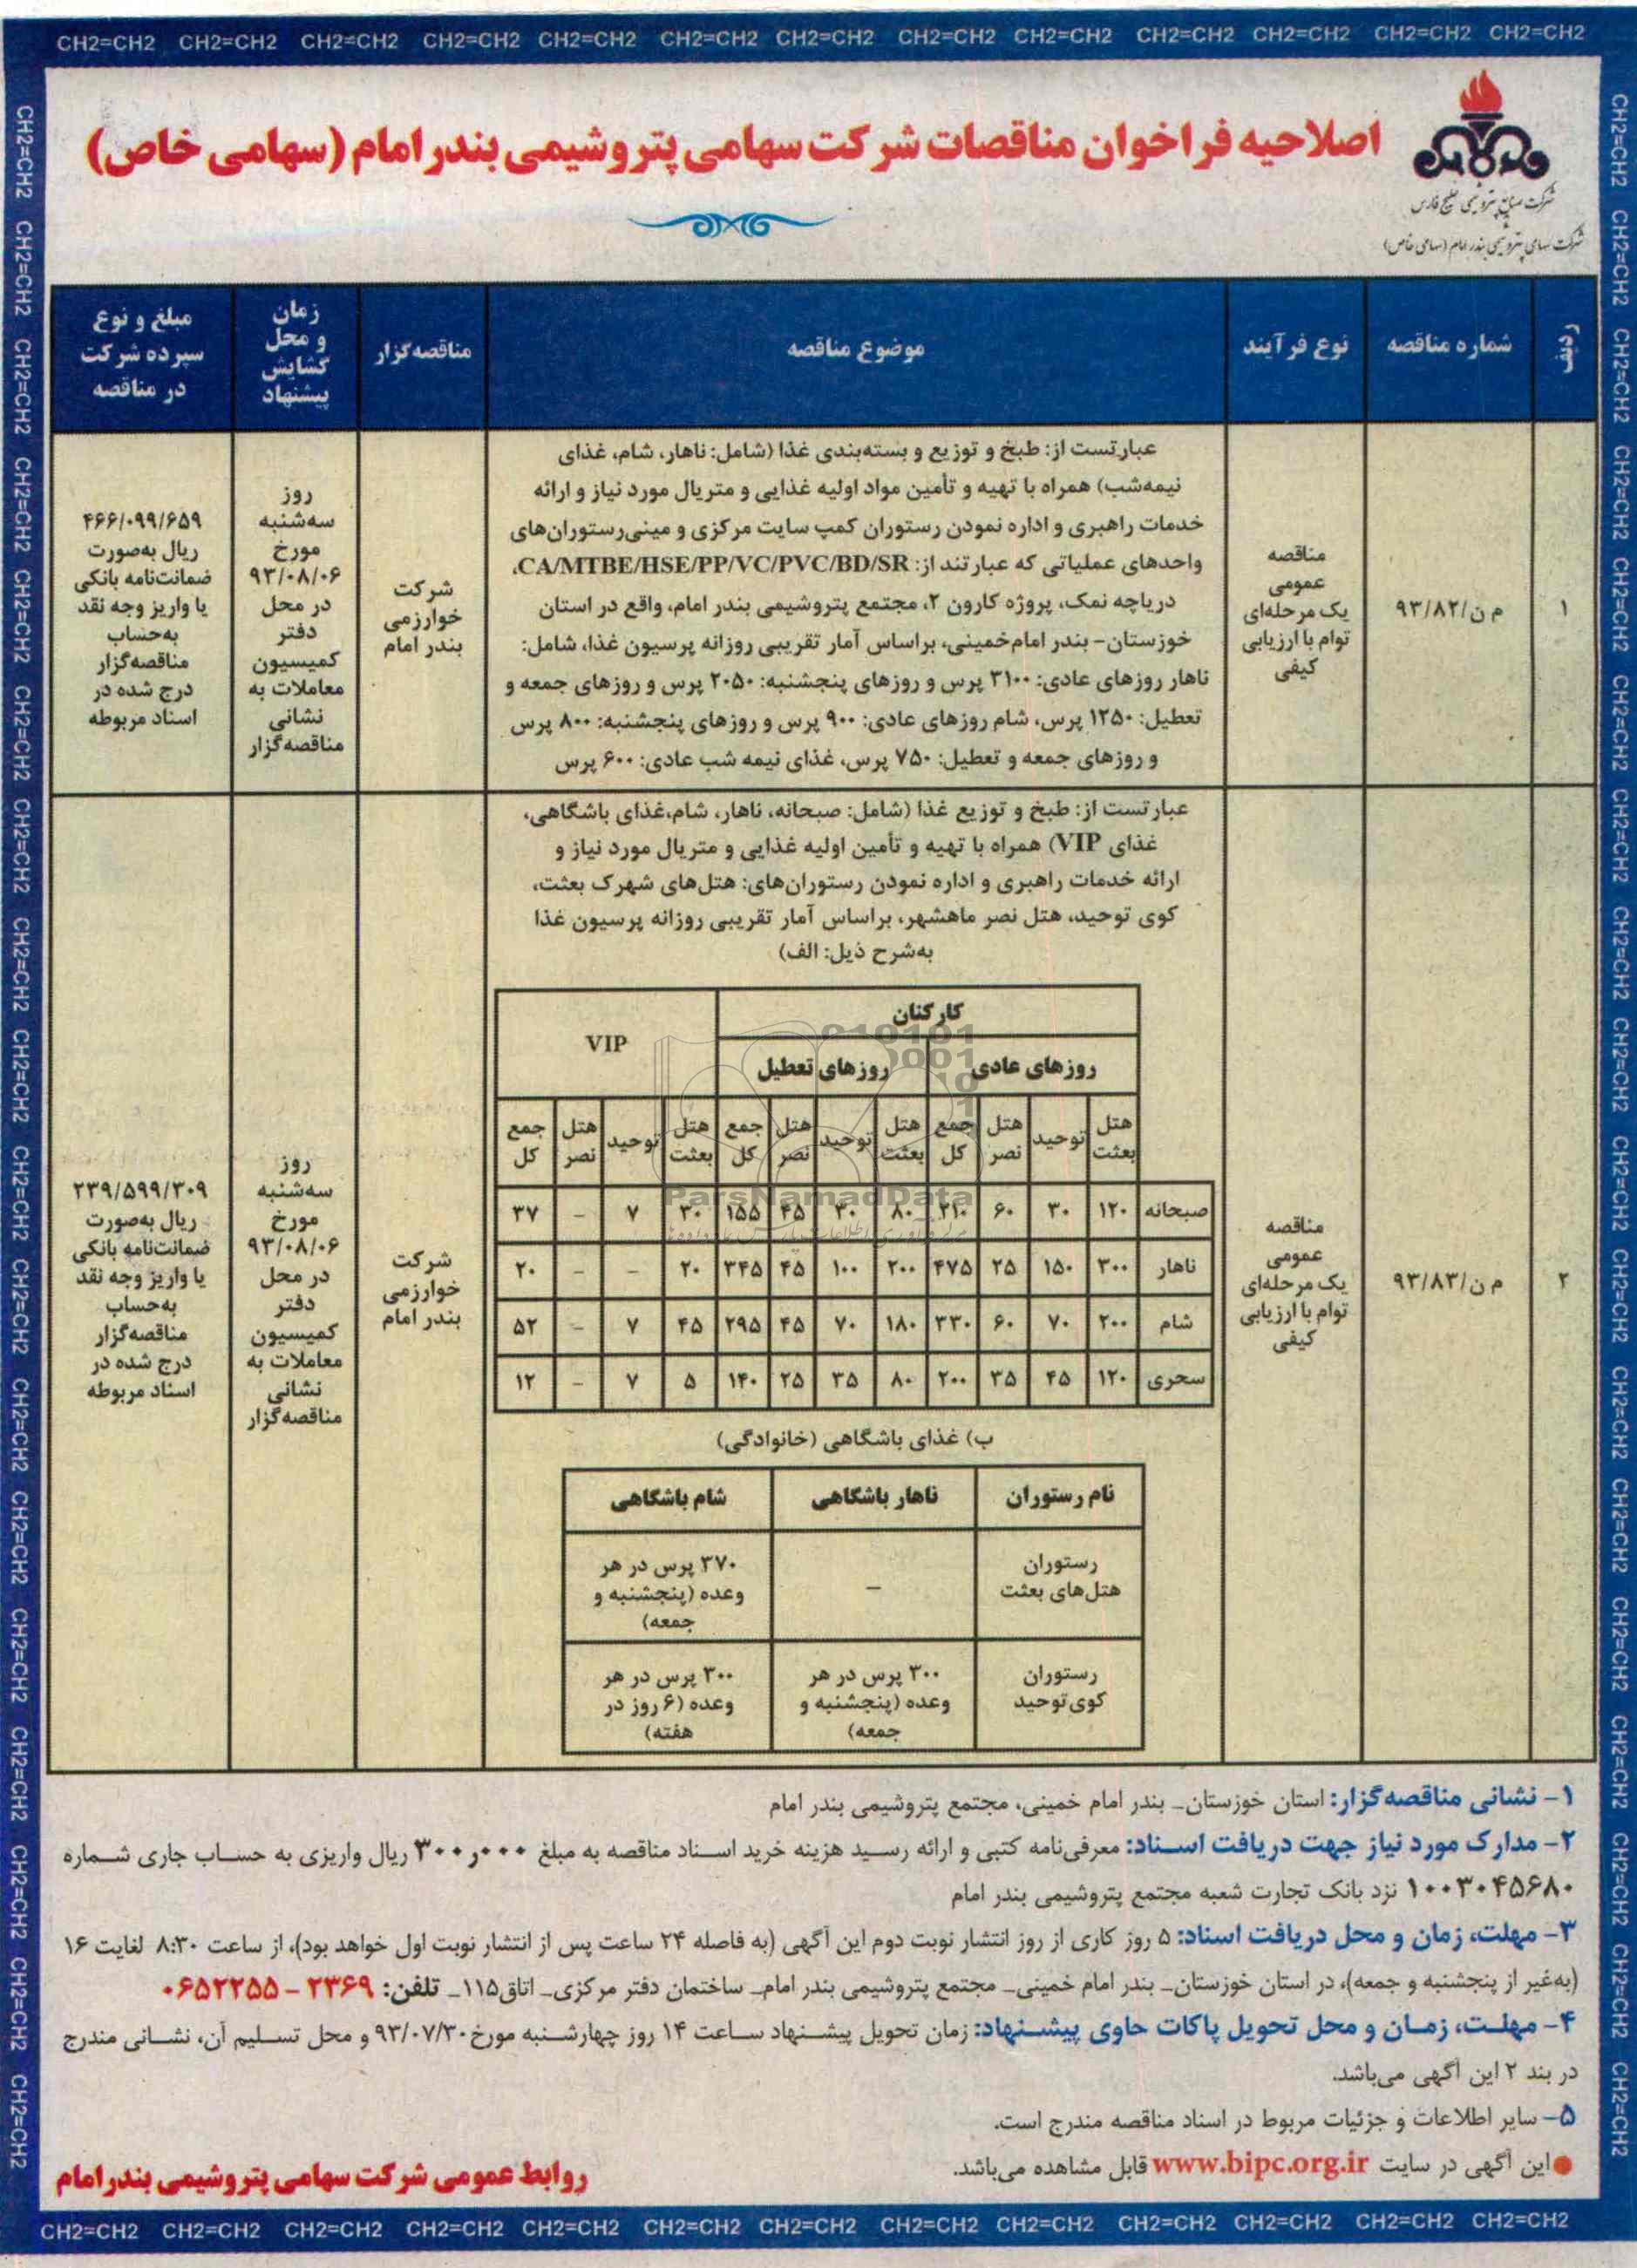 CH2=CH2 CH2=CH2 CH2=CH2 CH2=CH2 CH2=CH2 CH2=CH2 CH2=CH2 CH2=CH2 CH2=CH2 CH2=CH2 CH2=CH2 CH2=CH2 CH2=CH2
اصلاحیه فراخوان مناقصات شرکت سهامی پتروشیمی بندر امام (سهامی خاص)
شرکت صنایع پتروشیمی خلیج فارس
شرکت سهامی پتروشیمی بندر امام (سهامی خاص)
ردیف
شماره مناقصه
نوع فرآیند
موضوع مناقصه
مناقصه‌گزار
زمان
و محل
گشایش
پیشنهاد
مبلغ و نوع
سپرده شرکت
در مناقصه
۱
م ن/۹۳/۸۲
مناقصه
عمومی
یک مرحله‌ای
توام با ارزیابی
کیفی
عبارتست از: طبخ و توزیع و بسته‌بندی غذا (شامل: ناهار، شام، غذای
نیمه‌شب) همراه با تهیه و تأمین مواد اولیه غذایی و متریال مورد نیاز و ارائه
خدمات راهبری و اداره نمودن رستوران کمپ سایت مرکزی و مینی‌رستوران‌های
واحدهای عملیاتی که عبارتند از: CA/MTBE/HSE/PP/VC/PVC/BD/SR،
دریاچه نمک، پروژه کارون ۲، مجتمع پتروشیمی بندر امام، واقع در استان
خوزستان- بندر امام‌خمینی، براساس آمار تقریبی روزانه پرسیون غذا، شامل:
ناهار روزهای عادی: ۳۱۰۰ پرس و روزهای پنجشنبه: ۲۰۵۰ پرس و روزهای جمعه و
تعطیل: ۱۲۵۰ پرس، شام روزهای عادی: ۹۰۰ پرس و روزهای پنجشنبه: ۸۰۰ پرس
و روزهای جمعه و تعطیل: ۷۵۰ پرس، غذای نیمه شب عادی: ۶۰۰ پرس
شرکت
خوارزمی
بندر امام
روز
سه‌شنبه
مورخ
۹۳/۰۸/۰۶
در محل
دفتر
کمیسیون
معاملات به
نشانی
مناقصه‌گزار
۴۶۶/۰۹۹/۶۵۹
ریال به‌صورت
ضمانت‌نامه بانکی
یا واریز وجه نقد
به‌حساب
مناقصه‌گزار
درج شده در
اسناد مربوطه
۲
م ن/۹۳/۸۳
مناقصه
عمومی
یک مرحله‌ای
توام با ارزیابی
کیفی
عبارتست از: طبخ و توزیع غذا (شامل: صبحانه، ناهار، شام،غذای باشگاهی،
غذای VIP) همراه با تهیه و تأمین اولیه غذایی و متریال مورد نیاز و
ارائه خدمات راهبری و اداره نمودن رستوران‌های: هتل‌های شهرک بعثت،
کوی توحید، هتل نصر ماهشهر، براساس آمار تقریبی روزانه پرسیون غذا
به‌شرح ذیل: الف)
کارکنان VIP
روزهای عادی روزهای تعطیل
هتل بعثت توحید هتل نصر جمع کل هتل بعثت توحید هتل نصر جمع کل هتل بعثت توحید هتل نصر جمع کل
صبحانه ۱۲۰ ۳۰ ۶۰ ۲۱۰ ۸۰ ۳۰ ۴۵ ۱۵۵ ۳۰ ۷ – ۳۷
ناهار ۳۰۰ ۱۵۰ ۲۵ ۴۷۵ ۲۰۰ ۱۰۰ ۴۵ ۳۴۵ ۲۰ – – ۲۰
شام ۲۰۰ ۷۰ ۶۰ ۳۳۰ ۱۸۰ ۷۰ ۴۵ ۲۹۵ ۴۵ ۷ – ۵۲
سحری ۱۲۰ ۴۵ ۳۵ ۲۰۰ ۸۰ ۳۵ ۲۵ ۱۴۰ ۵ ۷ – ۱۲
ParsNamadData
ب) غذای باشگاهی (خانوادگی)
نام رستوران ناهار باشگاهی شام باشگاهی
رستوران
هتل‌های بعثت
–
۳۷۰ پرس در هر
وعده (پنجشنبه و
جمعه)
رستوران
کوی‌توحید
۳۰۰ پرس در هر
وعده (پنجشنبه و
جمعه)
۳۰۰ پرس در هر
وعده (۶ روز در
هفته)
شرکت
خوارزمی
بندر امام
روز
سه‌شنبه
مورخ
۹۳/۰۸/۰۶
در محل
دفتر
کمیسیون
معاملات به
نشانی
مناقصه‌گزار
۲۳۹/۵۹۹/۳۰۹
ریال به‌صورت
ضمانت‌نامه بانکی
یا واریز وجه نقد
به‌حساب
مناقصه‌گزار
درج شده در
اسناد مربوطه
۱- نشانی مناقصه‌گزار: استان خوزستان- بندر امام خمینی، مجتمع پتروشیمی بندر امام
۲- مدارک مورد نیاز جهت دریافت اسناد: معرفی‌نامه کتبی و ارائه رسید هزینه خرید اسناد مناقصه به مبلغ ۳۰۰٫۰۰۰ ریال واریزی به حساب جاری شماره
۱۰۰۳۰۴۵۶۸۰ نزد بانک تجارت شعبه مجتمع پتروشیمی بندر امام
۳- مهلت، زمان و محل دریافت اسناد: ۵ روز کاری از روز انتشار نوبت دوم این آگهی (به فاصله ۲۴ ساعت پس از انتشار نوبت اول خواهد بود)، از ساعت ۸:۳۰ لغایت ۱۶
(به‌غیر از پنجشنبه و جمعه)، در استان خوزستان- بندر امام خمینی- مجتمع پتروشیمی بندر امام- ساختمان دفتر مرکزی- اتاق۱۱۵- تلفن: ۲۳۶۹ - ۰۶۵۲۲۵۵
۴- مهلت، زمان و محل تحویل پاکات حاوی پیشنهاد: زمان تحویل پیشنهاد ساعت ۱۴ روز چهارشنبه مورخ۹۳/۰۷/۳۰ و محل تسلیم آن، نشانی مندرج
در بند ۲ این آگهی می‌باشد.
۵- سایر اطلاعات و جزئیات مربوط در اسناد مناقصه مندرج است.
● این آگهی در سایت www.bipc.org.ir قابل مشاهده می‌باشد.
روابط عمومی شرکت سهامی پتروشیمی بندر امام
CH2=CH2 CH2=CH2 CH2=CH2 CH2=CH2 CH2=CH2 CH2=CH2 CH2=CH2 CH2=CH2 CH2=CH2 CH2=CH2 CH2=CH2 CH2=CH2 CH2=CH2